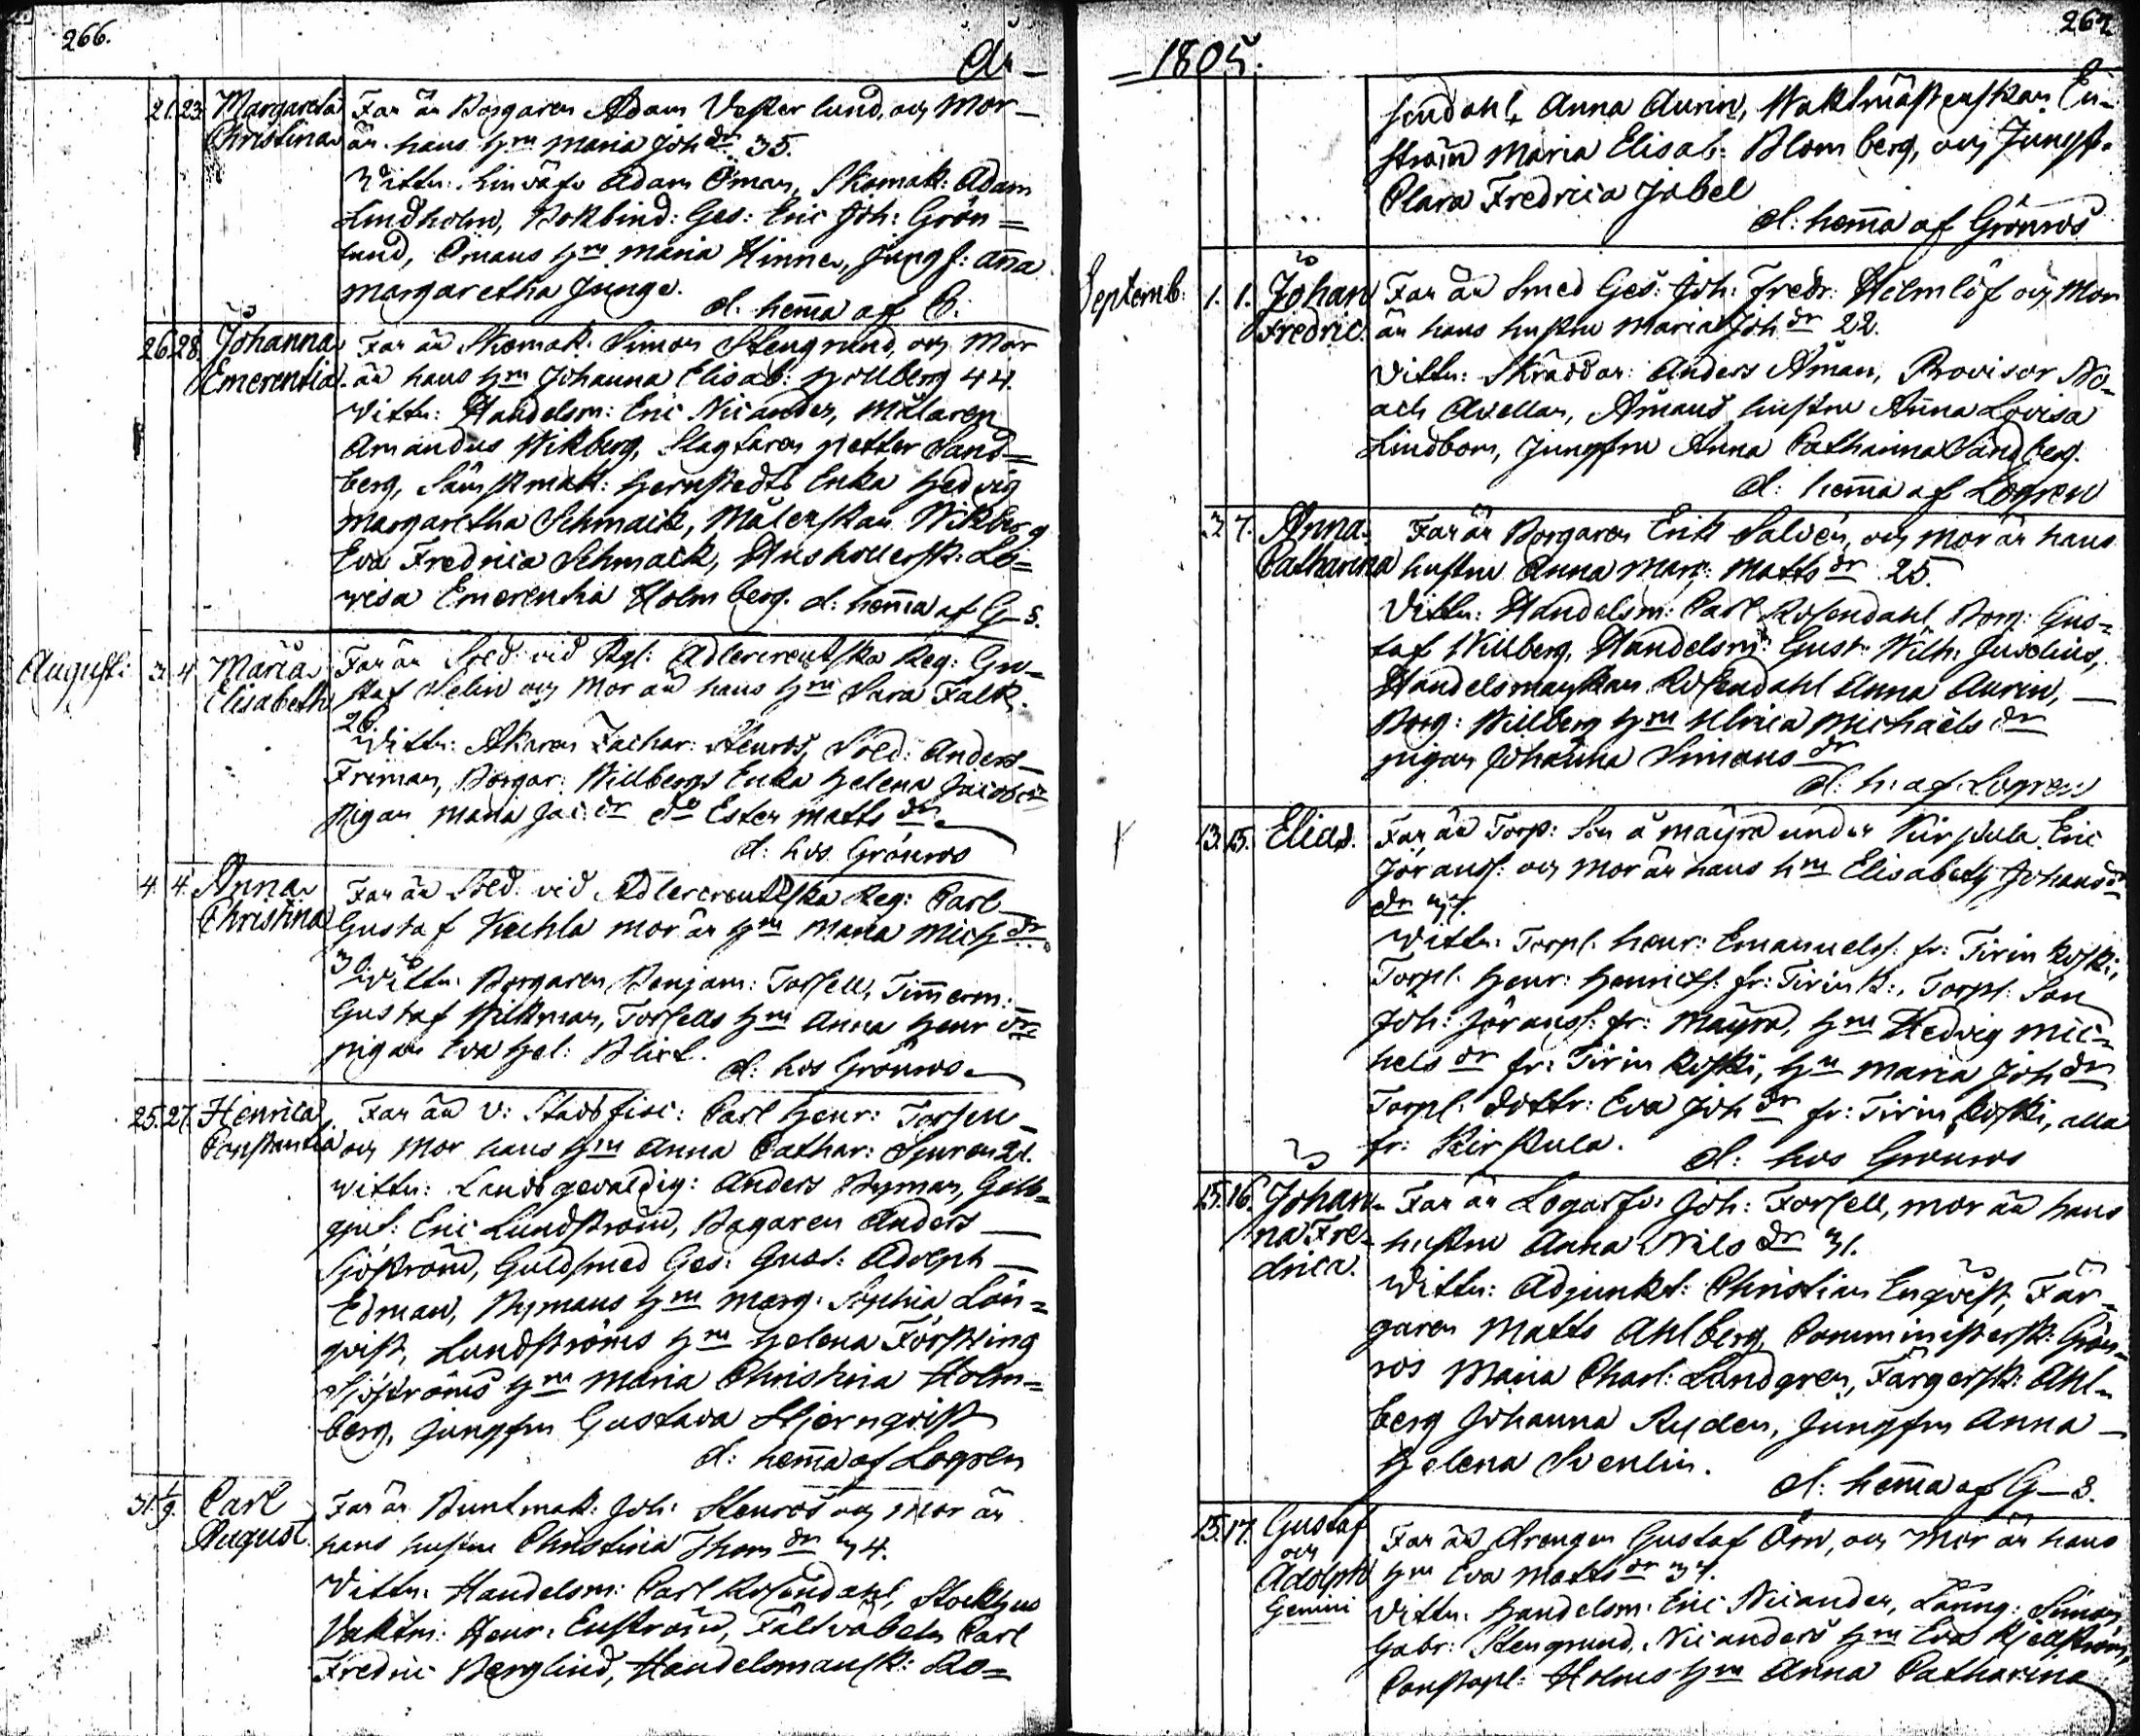 266.
År
21. 23. Margareta Far är Borgaren Adam Vesterlund, och Mor
Christina är hans hru Maria Joh dr. 35.
Vittn: Linväfv Adam Öman, Skomak: Adam
Lindholm, Bokbind: Ges: Eric Joh: Grön=
lund, Ömans hru Maria Hinner, Jungf: Anna
Margaretha Junge.
d. hemma af B.
26. 28. Johanna Far är Skomak: Simon Stengrund, och Mor
Emerentia. är hans hru Johanna Elisab: Hollberg 44.
Vittn: Handelsm: Eric Nicander, Målaren
Amandus Wikberg, Slagtaren Petter Sand=
berg, Hernstedts Enka Hedvig
Margaretha Schmack, Målerskan Wikberg
Eva Fredrica Schmack, Hushollersk: Lo=
visa Emerentia Holmberg. d: hemma af G—s.
August: 3. 4. Maria Far är Sold: vid Kgl: Adlercreutzka Reg: Gu=
Elisabeth staf Selin och Mor är hans hru Sara Falk.
26.
Vittn: Åkaren Zachar: Stenros, Sold: Anders
Friman, Borgar: Willbergs Enka Helena Jacobs dr
pigan Maria Jac: dr do Ester Matts dr
d: hos Grönros
4. 4. Anna Far är Sold: vid Adlercreutzska Reg: Carl
Christina Gustaf Kuhla mor är hru Maria Mich dr.
30.
Vittn: Borgaren Benjam: Forsell, Timmerm:
Gustaf Wilkman, Forsells hru Anna Henr dr
pigan Eva Hel: Blixt.
d: hos Grönros
25. 27. Henrica Far är v: Stadsfisc: Carl Henr: Forssen
Constantia och Mor hans hru Anna Cathar: Spuren 21.
Vittn: Landsgevaldig: Anders Nyman, Guld=
Eric Lundström, Bagaren Anders
Sjöström, Guldsmed Ges: Gust: Adolph
Edman, Nymans hru Marg: Sophia Lön=
qvist, Lundströms hru Helena Forstring
Sjöströms hru Maria Christina Holm=
berg, Jungfru Gustava Stjernqvist
d: hemma af Logren
31. 1/9. Carl Far är Buntmak: Joh: Stenros och Mor är
August. hans hustru Christina Thom dr 34.
Vittn: Handelsm: Carl Rosendahl, Stockhus
Vaktm: Henr: Enström, Fältväbeln Carl
Fredric Berglind, Handelsmansk: Ro=
267
=1805.
sendahl Anna Aurin, Waktmästerskan En=
ström Maria Elisab: Blomberg, och Jungf:
Clara Fredrica Jabel
d: hemma af Grönros
Septemb: 1. 1. Johan Far är Smed Ges: Joh: Fredr: Holmlöf och Mor
Fredric. är hans hustru Maria Joh dr 22.
Vittn: Skräddar: Anders Åman, Provisor No=
ach Avellan, Åmans hustru Anna Lovisa
Lindbom, Jungfru Anna Catharina Sandberg.
d: hemma af Logren
3. 7. Anna Far är Borgaren Erik Salvén, och Mor är hans
Catharina hustru Anna Marg: Matts dr 25.
Vittn: Handelsm: Carl Rosendahl, Borg: Gus=
taf Willberg, Handelsm: Gust: Wilh: Juselius,
Handelsmanskan Rosendahl Anna Aurin,
Borg: Willberg hru Ulrica Michaels dr
pigan Johanna Simons dr
d: h: af Logren
13. 15. Elias. Far är Torp: Son å Mäyrä under Kirstula Eric
Göranss: och Mor är hans hru Elisabeth Johans
dr 37.
Vittn: Torpl: Henr: Emanuelss: fr: Tirinkoski,
Torpl: Henr: Henricss: fr: Tirink:, Torpl: Son
Joh: Jöranss: fr: Mäyrä, hru Hedvig Mic=
hels dr fr: Tirinkoski, hru Maria Joh dr
Torpl: dottr: Eva Joh dr fr: Tirinkoski, alla
fr: Kirstula. d: hos Grönros
15. 16. Johan= Far är Joh: Forsell, mor är hans
na Fre= hustru Anna Nils dr 31.
drica. Vittn: Adjunkt: Christian Enqvist, Fär=
garen Matts Ahlberg, Comministersk: Grön=
ros Maria Charl: Landgren, Färgersk: Ahl=
berg Johanna Ryden, Jungfru Anna
Helena Svenlin.
d: hemma af G—s.
15. 17. Gustaf Far är Drengen Gustaf Örn, och Mor är hans
och
Adolph hru Eva Matts dr 37.
Gemini Vittn: Handelsm: Eric Nicander, Simon
Gabr: Stengrund, Nicanders hru Eva Kjellström,
Constapl: Holms hru Anna Catharina